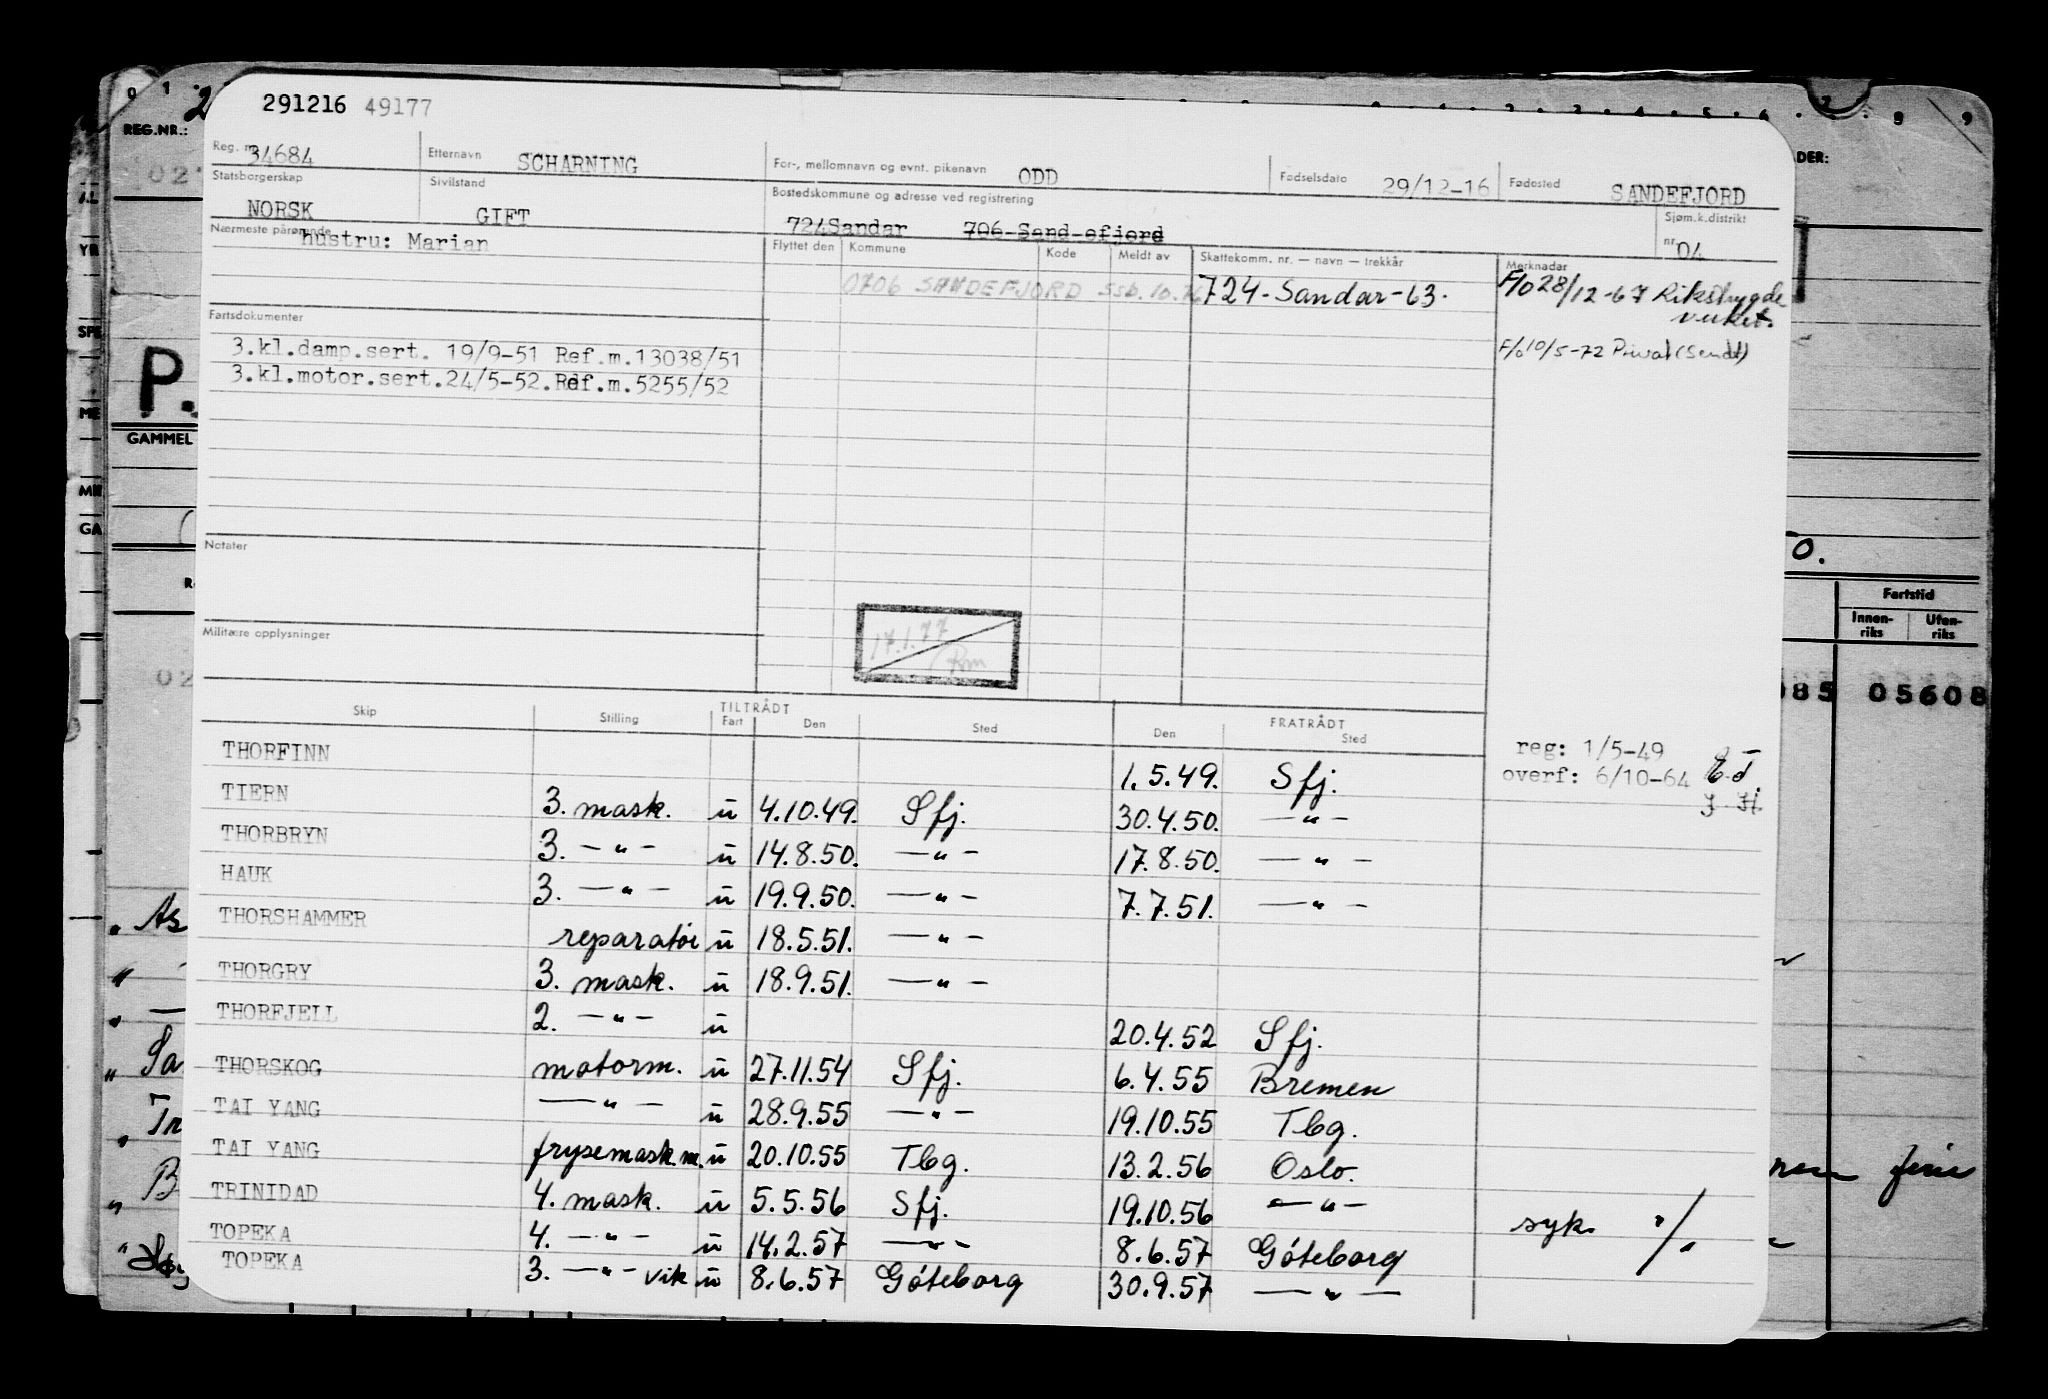 291216 49177
Reg. nr. 34684 Etternavn SCHARNING For-, mellomnavn og evnt. pikenavn ODD Fødselsdato 29/12-16 Fødested SANDEFJORD
Statsborgerskap NORSK Sivilstand GIFT Bostedskommune og adresse ved registrering 724Sandar 706-Sand-efjord Sjøm.k.distrikt nr. 04
Nærmeste pårørende hustru: Marian Flyttet den Kommune Kode Meldt av Skattekomm. nr. — navn — trekkår Merknader
0706 SANDEFJORD SSB.10.76 724-Sandar-63. F/o 28/12-67 Rikstrygde
verket.
F/o 10/5-72 Privat (Sendt)
Fartsdokumenter
3.kl.damp.sert. 19/9-51 Ref.m.13038/51
3.kl.motor.sert.24/5-52.Ref.m.5255/52
Notater
17.1.77
Rm
Militære opplysninger
Skip Stilling TILTRÅDT Fart Den Sted FRATRÅDT Den Sted
reg: 1/5-49
overf: 6/10-64
THORFINN 1.5.49. Sfj.
TIERN 3. mask. u 4.10.49. Sfj. 30.4.50. —"—
THORBRYN 3. —"— u 14.8.50. —"— 17.8.50. —"—
HAUK 3. —"— u 19.9.50. —"— 7.7.51. —"—
THORSHAMMER reparatør u 18.5.51. —"—
THORGRY 3. mask. u 18.9.51. —"—
THORFJELL 2. —"— u 20.4.52 Sfj.
THORSKOG motorm. u 27.11.54 Sfj. 6.4.55 Bremen
TAI YANG —"— u 28.9.55 —"— 19.10.55 Tbg.
TAI YANG frysemask.m. u 20.10.55 Tbg. 13.2.56 Oslo.
TRINIDAD 4. mask. u 5.5.56 Sfj. 19.10.56 —"— syk.
TOPEKA 4. —"— u 14.2.57 —"— 8.6.57 Göteborg
TOPEKA 3. —"— vik u 8.6.57 Göteborg 30.9.57 —"—
REG.NR.:
P.
GAMMEL
DER:
O.
Fartstid
Innen-
riks
Uten-
riks
085 05608